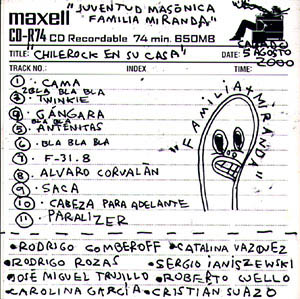 "JUVENTUD MASÓNICA
FAMILIA MIRANDA"
maxell
CD-R74 CD Recordable 74 min. 650MB
TITLE: "CHILEROCK EN SU CASA" DATE: 5 AGOSTO
2000
TRACK NO.: INDEX TIME:
1 CAMA
2 BLA BLA BLA
3 TWINKIE
4 GÁNGARA
BLA BLA
5 ANTENITAS
6 BLA BLA BLA
7 F-31.8
8 ALVARO CORVALÁN
9 SACA
10 CABEZA PARA ADELANTE
11 PARALIZER
"FAMILIA MIRANDA"
•RODRIGO COMBEROFF •CATALINA VAZQUEZ
•RODRIGO ROZAS •SERGIO IANISZEWSKI
•JOSÉ MIGUEL TRUJILLO •ROBERTO WELLO
•CAROLINA GARCÍA •CRISTIÁN SUAZO